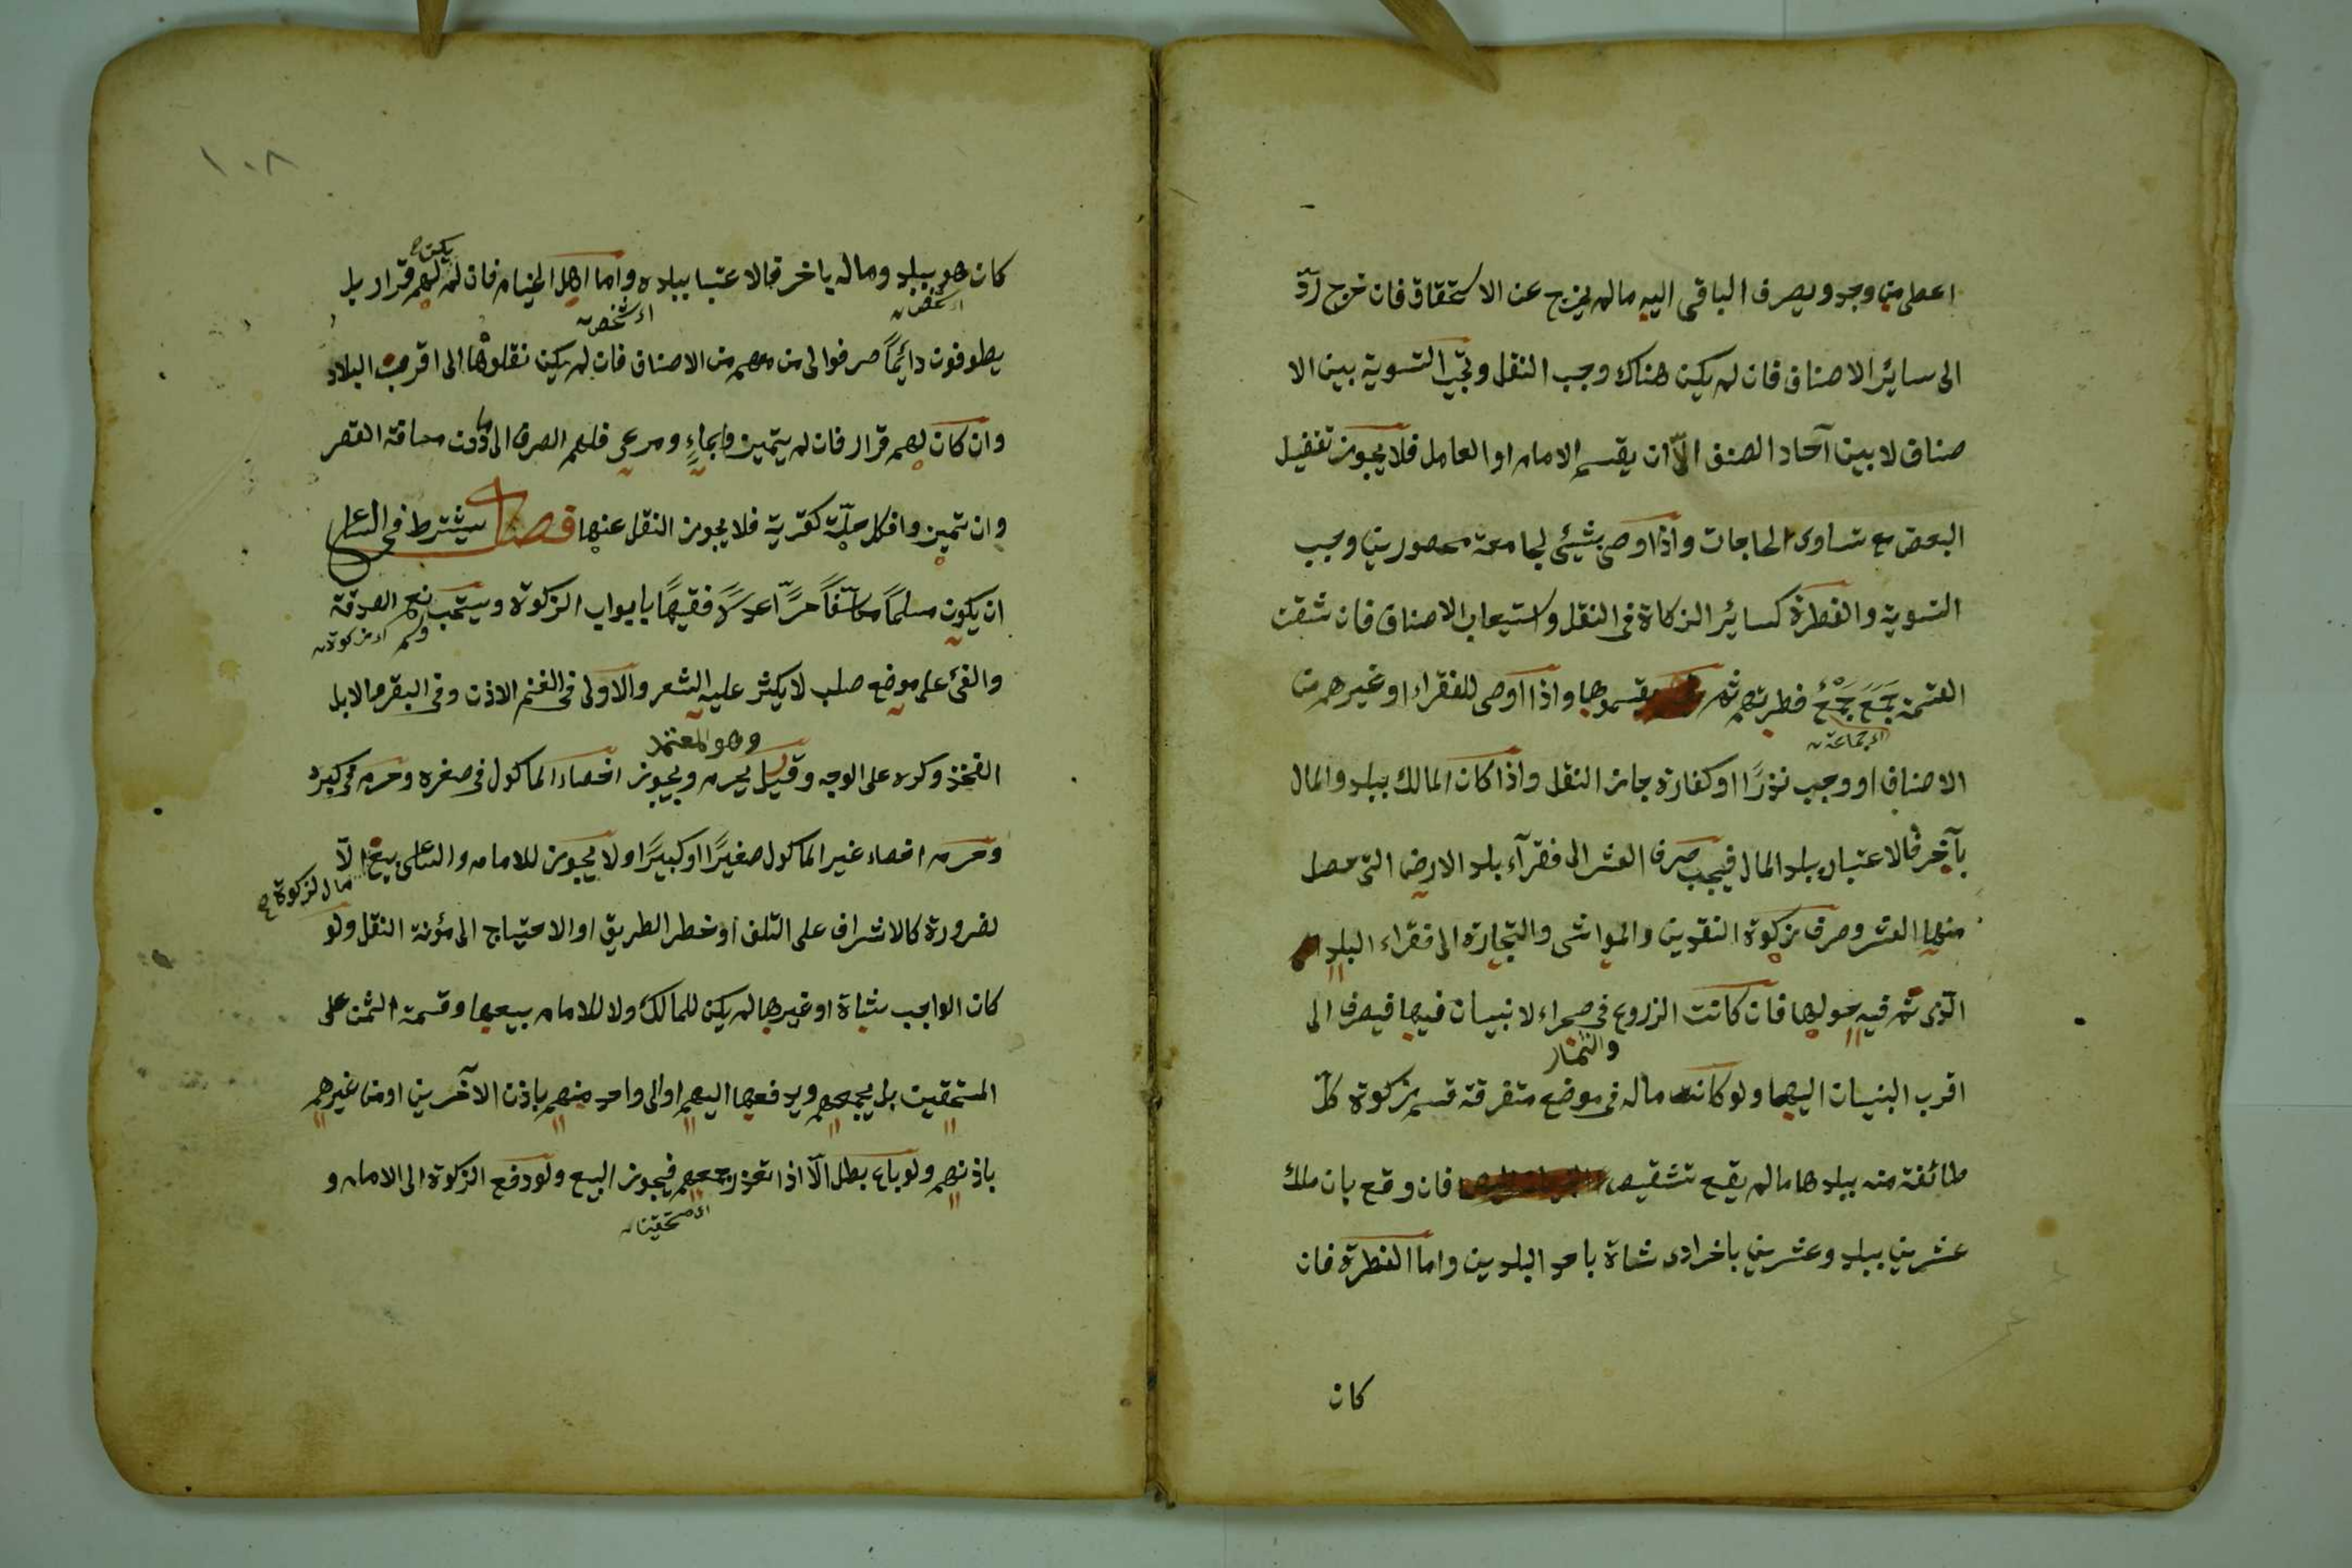 اعطى من وجد ويصرف الباقى اليه مالم يخرج عن الاستحقاق فان خرج ردّ
الى سائر الاصناف فان لم يكن هناك وجب النقل وتجب التسوية بين الا
صناف لا بين آحاد الصنف الّا ان يقسم الامام او العامل فلا يجوز تفضيل
البعض مع تساوى الحاجات واذا اوصى بشيئ لجامعة محصورين وجب
التسوية والفطرة كسائر الزكاة فى النقل واستيعاب الاصناف فان شقت
القسمة جَمَعَ جَمْعٌ فطرتهم ثم قسموها واذا اوصى للفقراء او غيرهم من
اى جماعة
الاصناف او وجب نذرًا او كفارة جاز النقل واذا كان المالك ببلد والمال
بآخر فالاعتبار ببلد المال فيجب صرف العشر الى فقرآء بلد الارض التى حصل
منها العشر وصرف زكوة النقدين والمواشى والتجارة الى فقراء البلد
الّذى تم فيه حولها فان كانت الزروع فى صحراء لا بنيان فيها فيصرف الى
والثمار
اقرب البنيان اليها ولو كانت ماله فى موضع متفرقة قسم زكوة كلّ
طائفة منه ببلدها مالم يقع تشقيص فان وقع بان ملك
عشرين ببلد وعشرين باخر ادى شاة باحد البلدين واما الفطرة فان
كان
١٠٨
يكن
كان هو ببلد وماله باخر فالاعتبا ببلده واما اهل الخيام فان لم لهم قرار بل
اى شخص
يطوفون دائمًا صرفوا الى من معهم من الاصناف فان لم يكن نقلوها الى اقرب البلاد
وان كان لهم قرار فان لم يتميزوا بماءٍ ومرعى فلهم الصرف الى ما دون مسافة القصر
وان تميزوا فكل حلّة كقرية فلا يجوز النقل عنها فصل يشترط فى الساعى
ان يكون مسلمًا مكلّفًا حرًّا عدلًا فقيهًا بابواب الزكوة ويستحب وسم نعم الصدقة
اى زكوة
والفئ على موضع صلب لا يكثر عليه الشعر والاولى فى الغنم الاذن وفى البقر والابل
وهو المعتمد
الفخذ وكره على الوجه وقيل يحرم ويجوز اخصاء الماكول فى صغره وحرم فى كبره
وحرم اخصاء غير الماكول صغيرًا او كبيرًا ولا يجوز للامام والساعى بيع الّا
مال الزكوة
لضرورة كالاشراف على التلف او خطر الطريق او الاحتياج الى مؤنة النقل ولو
كان الواجب شاة او غيرها لم يكن للمالك ولا للامام بيعها وقسمة الثمن على
المستحقين بل يجمعهم ويدفعها اليهم او الى واحد منهم باذن الآخرين او من غيرهم
باذنهم ولو باع بطل الّا اذا تعذر جمعهم فيجوز البيع ولو دفع الزكوة الى الامام و
المستحقين